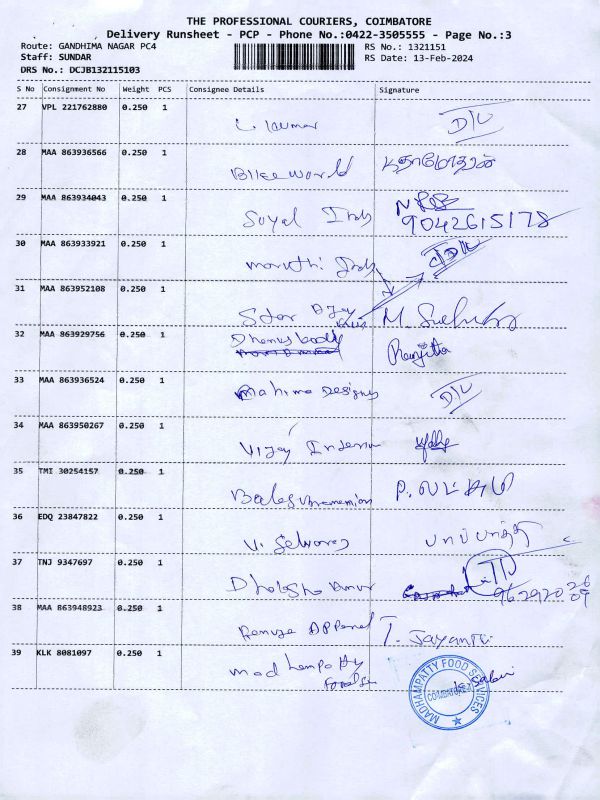 THE PROFESSIONAL COURIERS, COIMBATORE
Delivery Runsheet - PCP - Phone No.:0422-3505555 - Page No.:3
Route: GANDHIMA NAGAR PC4 RS No.: 1321151
Staff: SUNDAR RS Date: 13-Feb-2024
DRS No.: DCJB132115103
S No Consignment No Weight PCS Consignee Details Signature
27 VPL 221762880 0.250 1
L. Kumar D/L
28 MAA 863936566 0.250 1
Bikeworld
29 MAA 863934043 0.250 1
Suyal Inds 9042615178
30 MAA 863933921 0.250 1
Maruthi Inds D/L
31 MAA 863952108 0.250 1
Star M.
32 MAA 863929756 0.250 1
Dhanus body Ranjitha
33 MAA 863936524 0.250 1
Mahima Designs D/L
34 MAA 863950267 0.250 1
Vijay Interior
35 TMI 30254157 0.250 1
Balasubramaniam P.
36 EDQ 23847822 0.250 1
V.
37 TNJ 9347697 0.250 1
38 MAA 863948923 0.250 1
Apparel T. Jayanthi
39 KLK 8081097 0.250 1
Madhampatty
MADHAMPATTY FOOD SERVICES
COIMBATORE